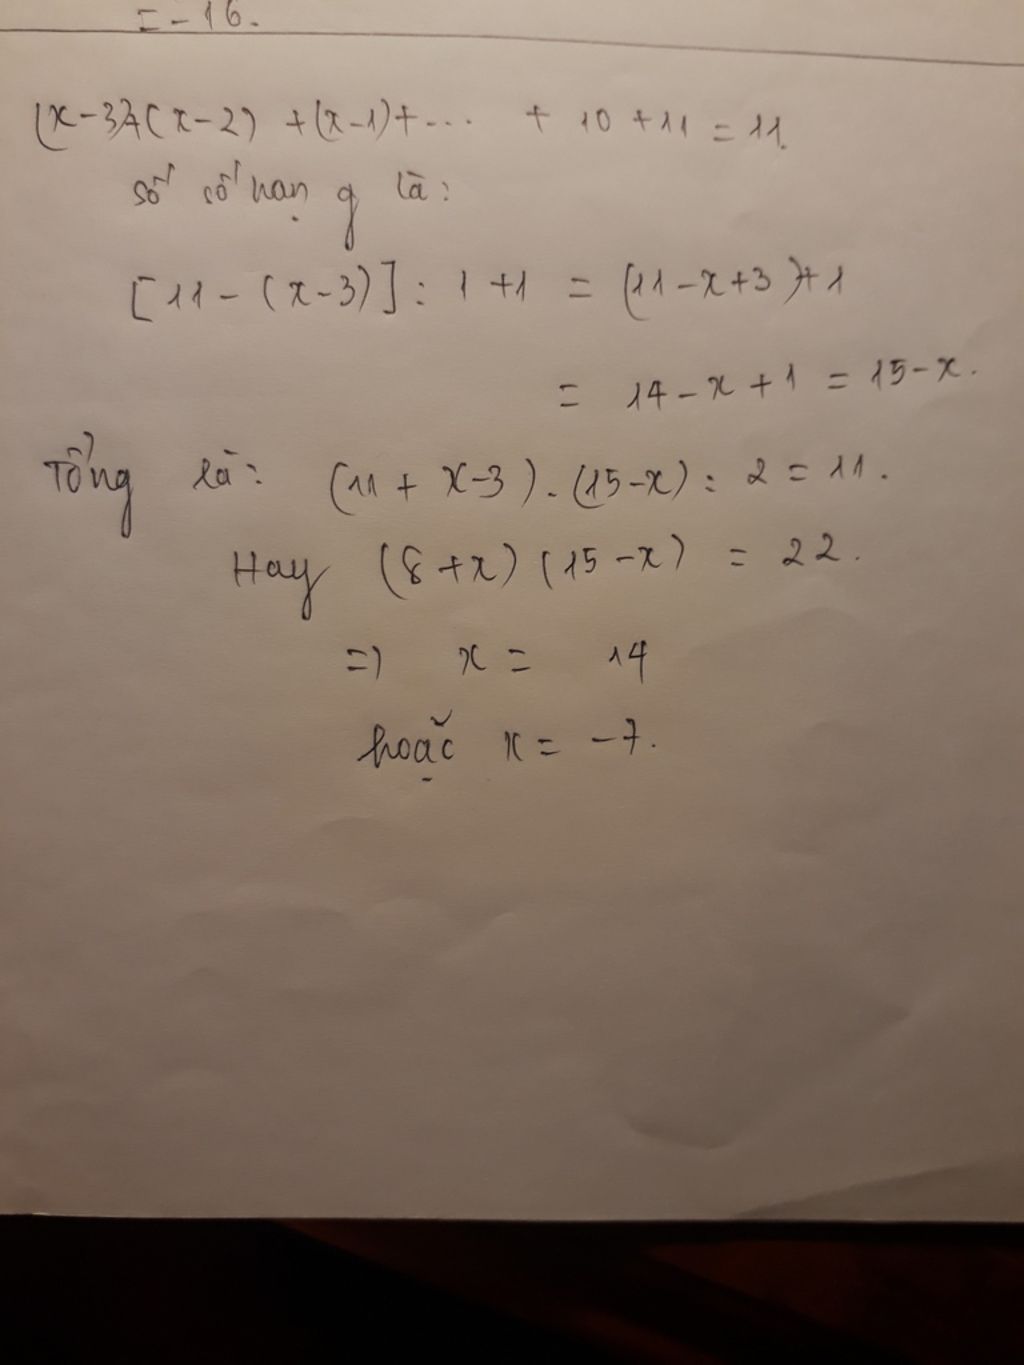 = -16.
(x-3)+(x-2) +(x-1)+... + 10 +11 = 11.
số số hạng là:
[11-(x-3)]: 1 +1 = (11-x+3)+1
= 14-x+1 = 15-x.
Tổng là: (11 + x-3).(15-x): 2 = 11.
Hay (8+x)(15-x) = 22.
=> x = 14
hoặc x = -7.